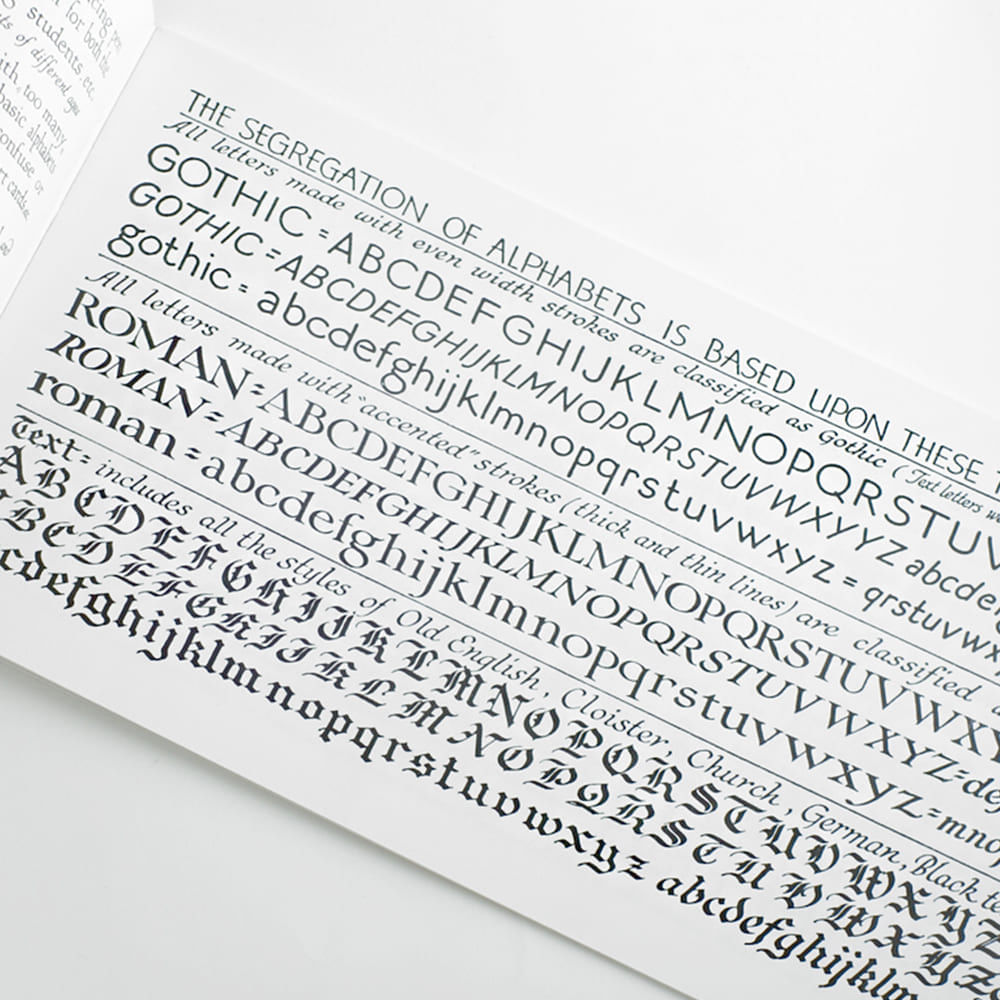 for both the
students, etc.
of different ages
with, too many,
basic alphabets
confuse or
art cards &
THE SEGREGATION OF ALPHABETS IS BASED UPON THESE
All letters made with even width strokes are classified as Gothic (Text letters
GOTHIC = ABCDEFGHIJKLMNOPQRSTUV
GOTHIC = ABCDEFGHIJKLMNOPQRSTUVWXYYZ abcde
gothic = abcdefghijklmnopqrstuvwxyz = qrstuvwx
All letters made with "accented" strokes (thick and thin lines) are classified
ROMAN = ABCDEFGHIJKLMNOPQRSTUVWXY
ROMAN = ABCDEFGHIJKLMNOPQRSTUVWXYZ = de
roman = abcdefghijklmnopqrstuvwxyz = mno
Text = includes all the styles of Old English, Cloister, Church, German, Black te
ABCDEFGHIJKLMNOPQRSTUVWXYZ
BCDEFGHIJKLMNOPQRSTUVWXYZ
cdefghijklmnopqrstuvwxyz abcdefghijklm